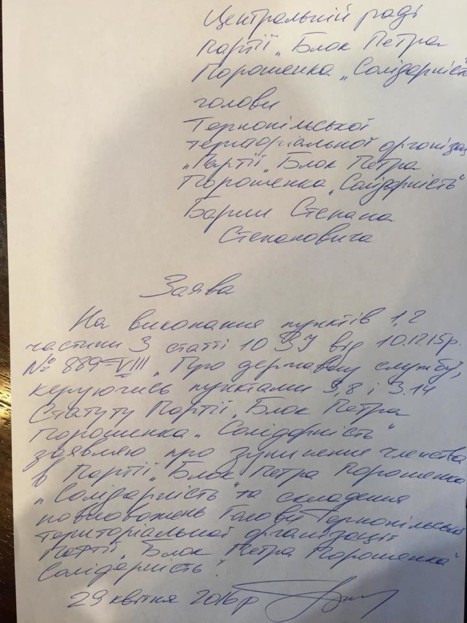 Центральній раді
партії „Блок Петра
Порошенка „Солідарність
голови
Тернопільської
територіальної організа
„Партії „Блок Петра
Порошенка „Солідарність"
Барни Степана
Степановича
Заява
На виконання пунктів 1,2
частини 3 статті 10 ЗУ від 10.12.15р.
№ 889-VIII „Про державну службу,
керуючись пунктами 3,8 і 3.14
Статуту Партії „Блок Петра
Порошенка „Солідарність"
заявляю про зупинення членства
в Партії „Блок Петра Порошенка
„Солідарність" та складення
повноважень Голови Тернопільської
територіальної організації
Партії „Блок Петра Порошенка"
Солідарність".
29 квітня 2016р